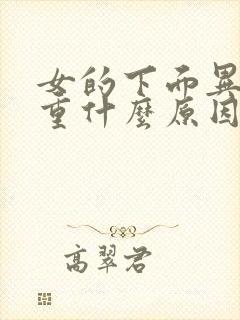 女的下面異
重什麼原因
高翠君